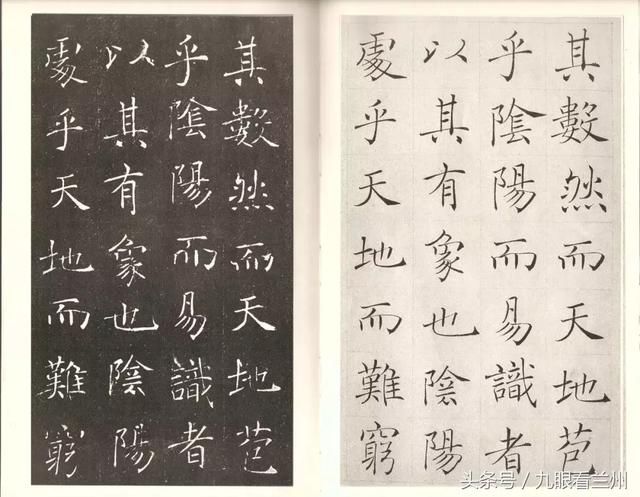 其數然而天地苞
乎陰陽而易識者
以其有象也陰陽
處乎天地而難窮
其數然而天地苞
乎陰陽而易識者
以其有象也陰陽
處乎天地而難窮
头条号/九眼看兰州